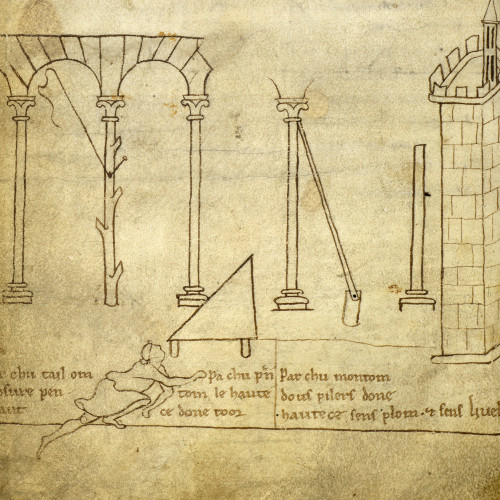 chu tail om
osure pen
Pa chu pñ
tom le haute
ce done toor
Par chu montom
dous pilers done
·hautece sens plom·⁊ sens liuel